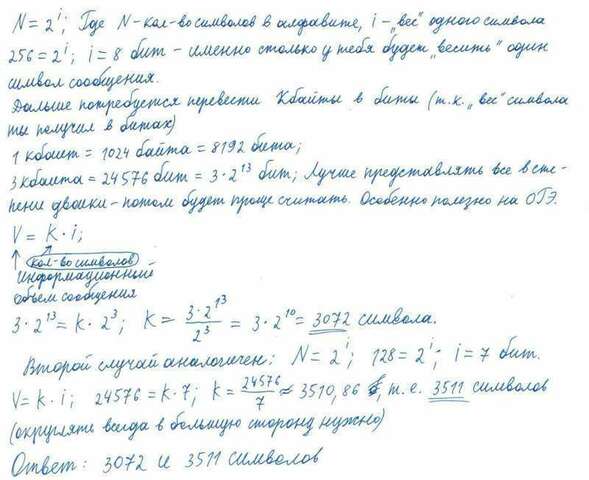 N = 2^i; Где N - кол-во символов в алфавите, i - „вес" одного символа
256 = 2^i; i = 8 бит - именно столько у тебя будет „весить" один
символ сообщения.
Дальше потребуется перевести Кбайты в биты (т.к. „вес" символа
ты получил в битах)
1 кбаит = 1024 байта = 8192 бита;
3 кбаита = 24576 бит = 3·2^13 бит; Лучше представлять все в сте-
пени двоики - потом будет проще считать. Особенно полезно на ОГЭ.
V = K · i;
кол-во символов
Информационный
объем сообщения
3·2^13 = K·2^3; K = 3·2^13 / 2^3 = 3·2^10 = 3072 символа.
Второй случай аналогичен: N = 2^i; 128 = 2^i; i = 7 бит.
V = K·i; 24576 = K·7; K = 24576 / 7 ≈ 3510,86 , т.е. 3511 символов
(округлять всегда в большую сторону нужно)
Ответ: 3072 и 3511 символов